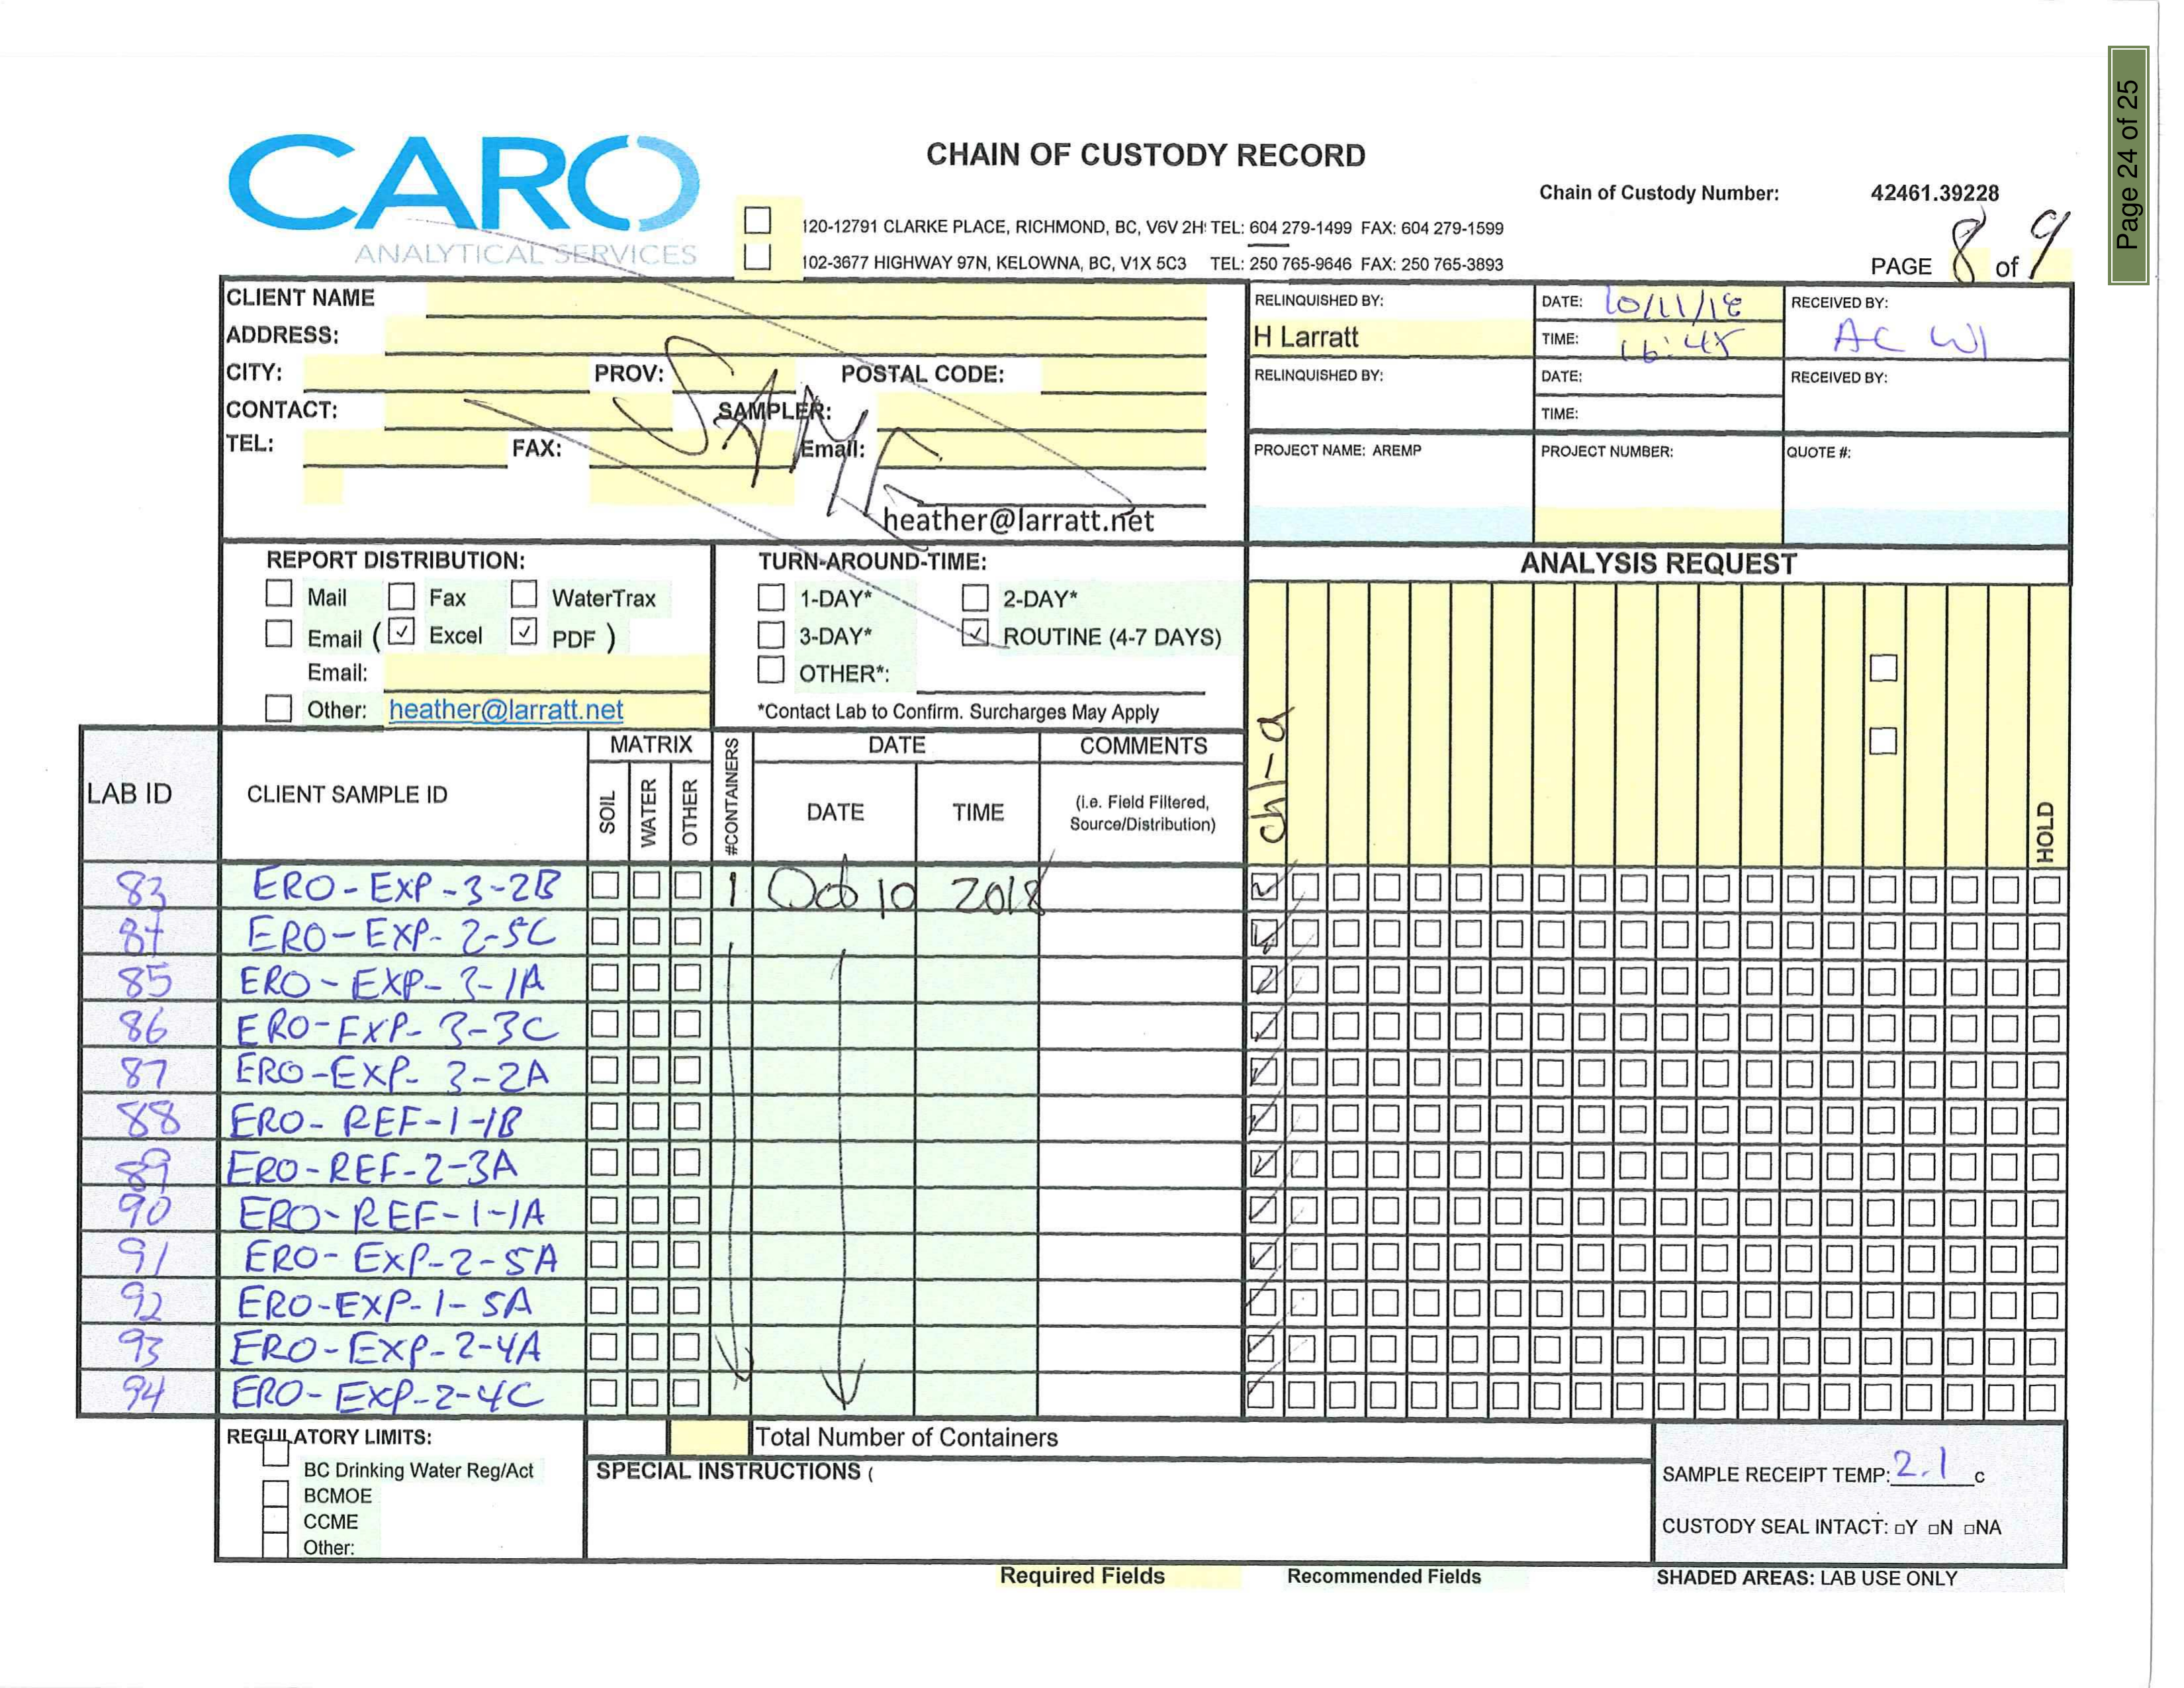 Page 24 of 25
CARO
ANALYTICAL SERVICES
CHAIN OF CUSTODY RECORD
Chain of Custody Number: 42461.39228
120-12791 CLARKE PLACE, RICHMOND, BC, V6V 2H TEL: 604 279-1499 FAX: 604 279-1599
102-3677 HIGHWAY 97N, KELOWNA, BC, V1X 5C3 TEL: 250 765-9646 FAX: 250 765-3893
PAGE 8 of 9
CLIENT NAME
ADDRESS:
CITY: PROV: POSTAL CODE:
CONTACT: SAMPLER:
TEL: FAX: Email:
SAME
heather@larratt.net
RELINQUISHED BY: DATE: 10/11/18 RECEIVED BY:
H Larratt TIME: 16:45 AC
RELINQUISHED BY: DATE: RECEIVED BY:
TIME:
PROJECT NAME: AREMP PROJECT NUMBER: QUOTE #:
REPORT DISTRIBUTION:
Mail Fax WaterTrax
Email ( ✓ Excel ✓ PDF )
Email:
Other: heather@larratt.net
TURN-AROUND-TIME:
1-DAY* 2-DAY*
3-DAY* ✓ ROUTINE (4-7 DAYS)
OTHER*:
*Contact Lab to Confirm. Surcharges May Apply
ANALYSIS REQUEST
chl-a
HOLD
LAB ID CLIENT SAMPLE ID MATRIX #CONTAINERS DATE COMMENTS
SOIL WATER OTHER DATE TIME (i.e. Field Filtered,
Source/Distribution)
83 ERO-EXP-3-2B 1 Oct 10 2018
ERO-EXP-2-5C
85 ERO-EXP-3-1A
86 ERO-EXP-3-3C
87 ERO-EXP-3-2A
88 ERO-REF-1-1B
89 ERO-REF-2-3A
90 ERO-REF-1-1A
91 ERO-EXP-2-5A
92 ERO-EXP-1-5A
93 ERO-EXP-2-4A
94 ERO-EXP-2-4C
REGULATORY LIMITS:
BC Drinking Water Reg/Act
BCMOE
CCME
Other:
Total Number of Containers
SPECIAL INSTRUCTIONS (
SAMPLE RECEIPT TEMP: 2.1 c
CUSTODY SEAL INTACT: □Y □N □NA
Required Fields Recommended Fields SHADED AREAS: LAB USE ONLY